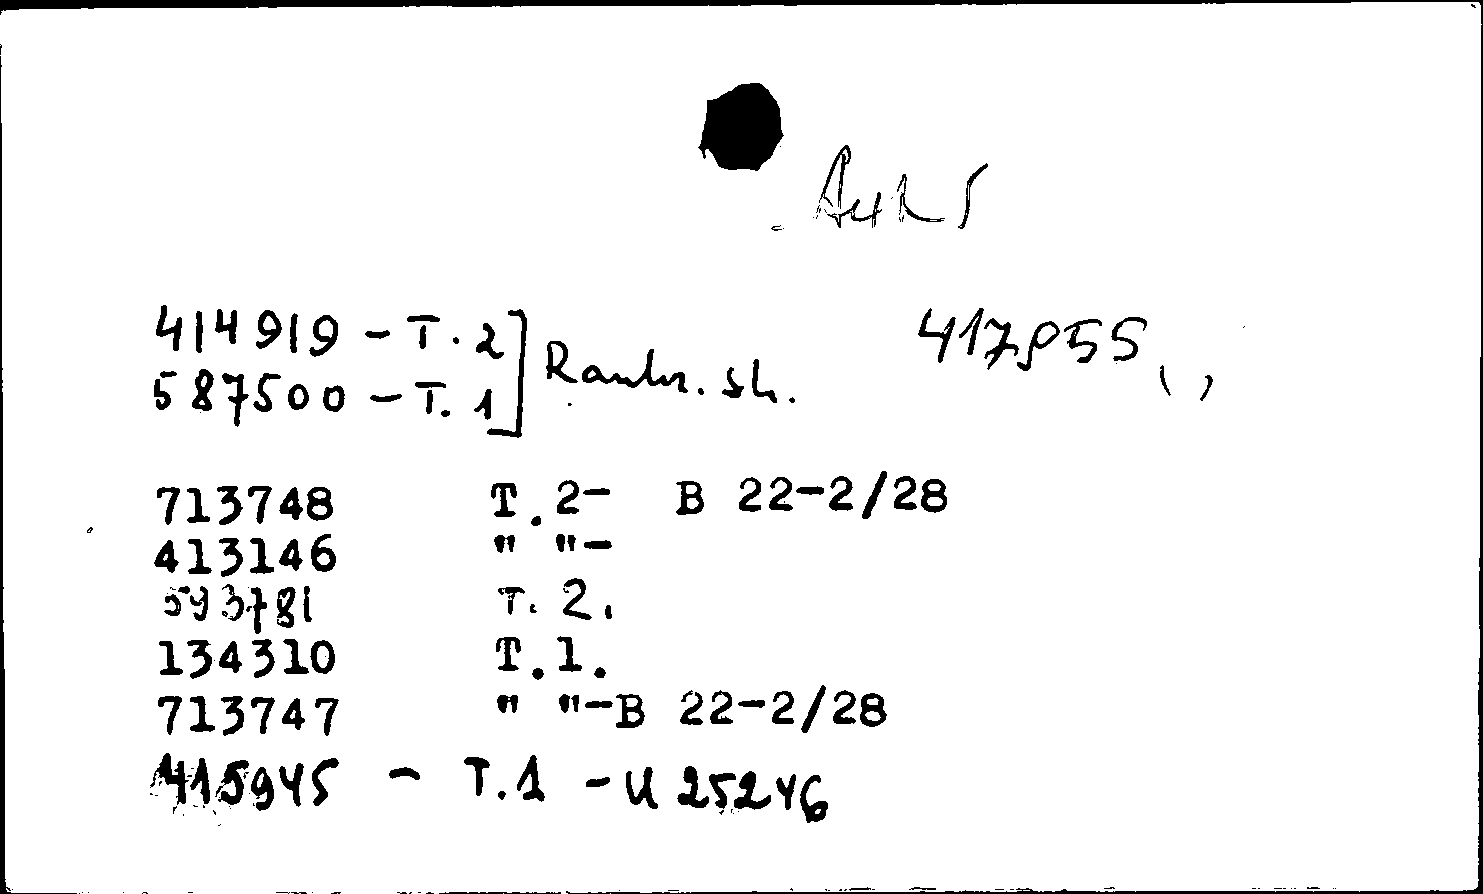 414919 - T. 2
587500 - T. 1
417855
713748 T.2- B 22-2/28
413146 " "-
593781 T. 2.
134310 T.1.
713747 " "-B 22-2/28
415945 - T.1 - U 25246